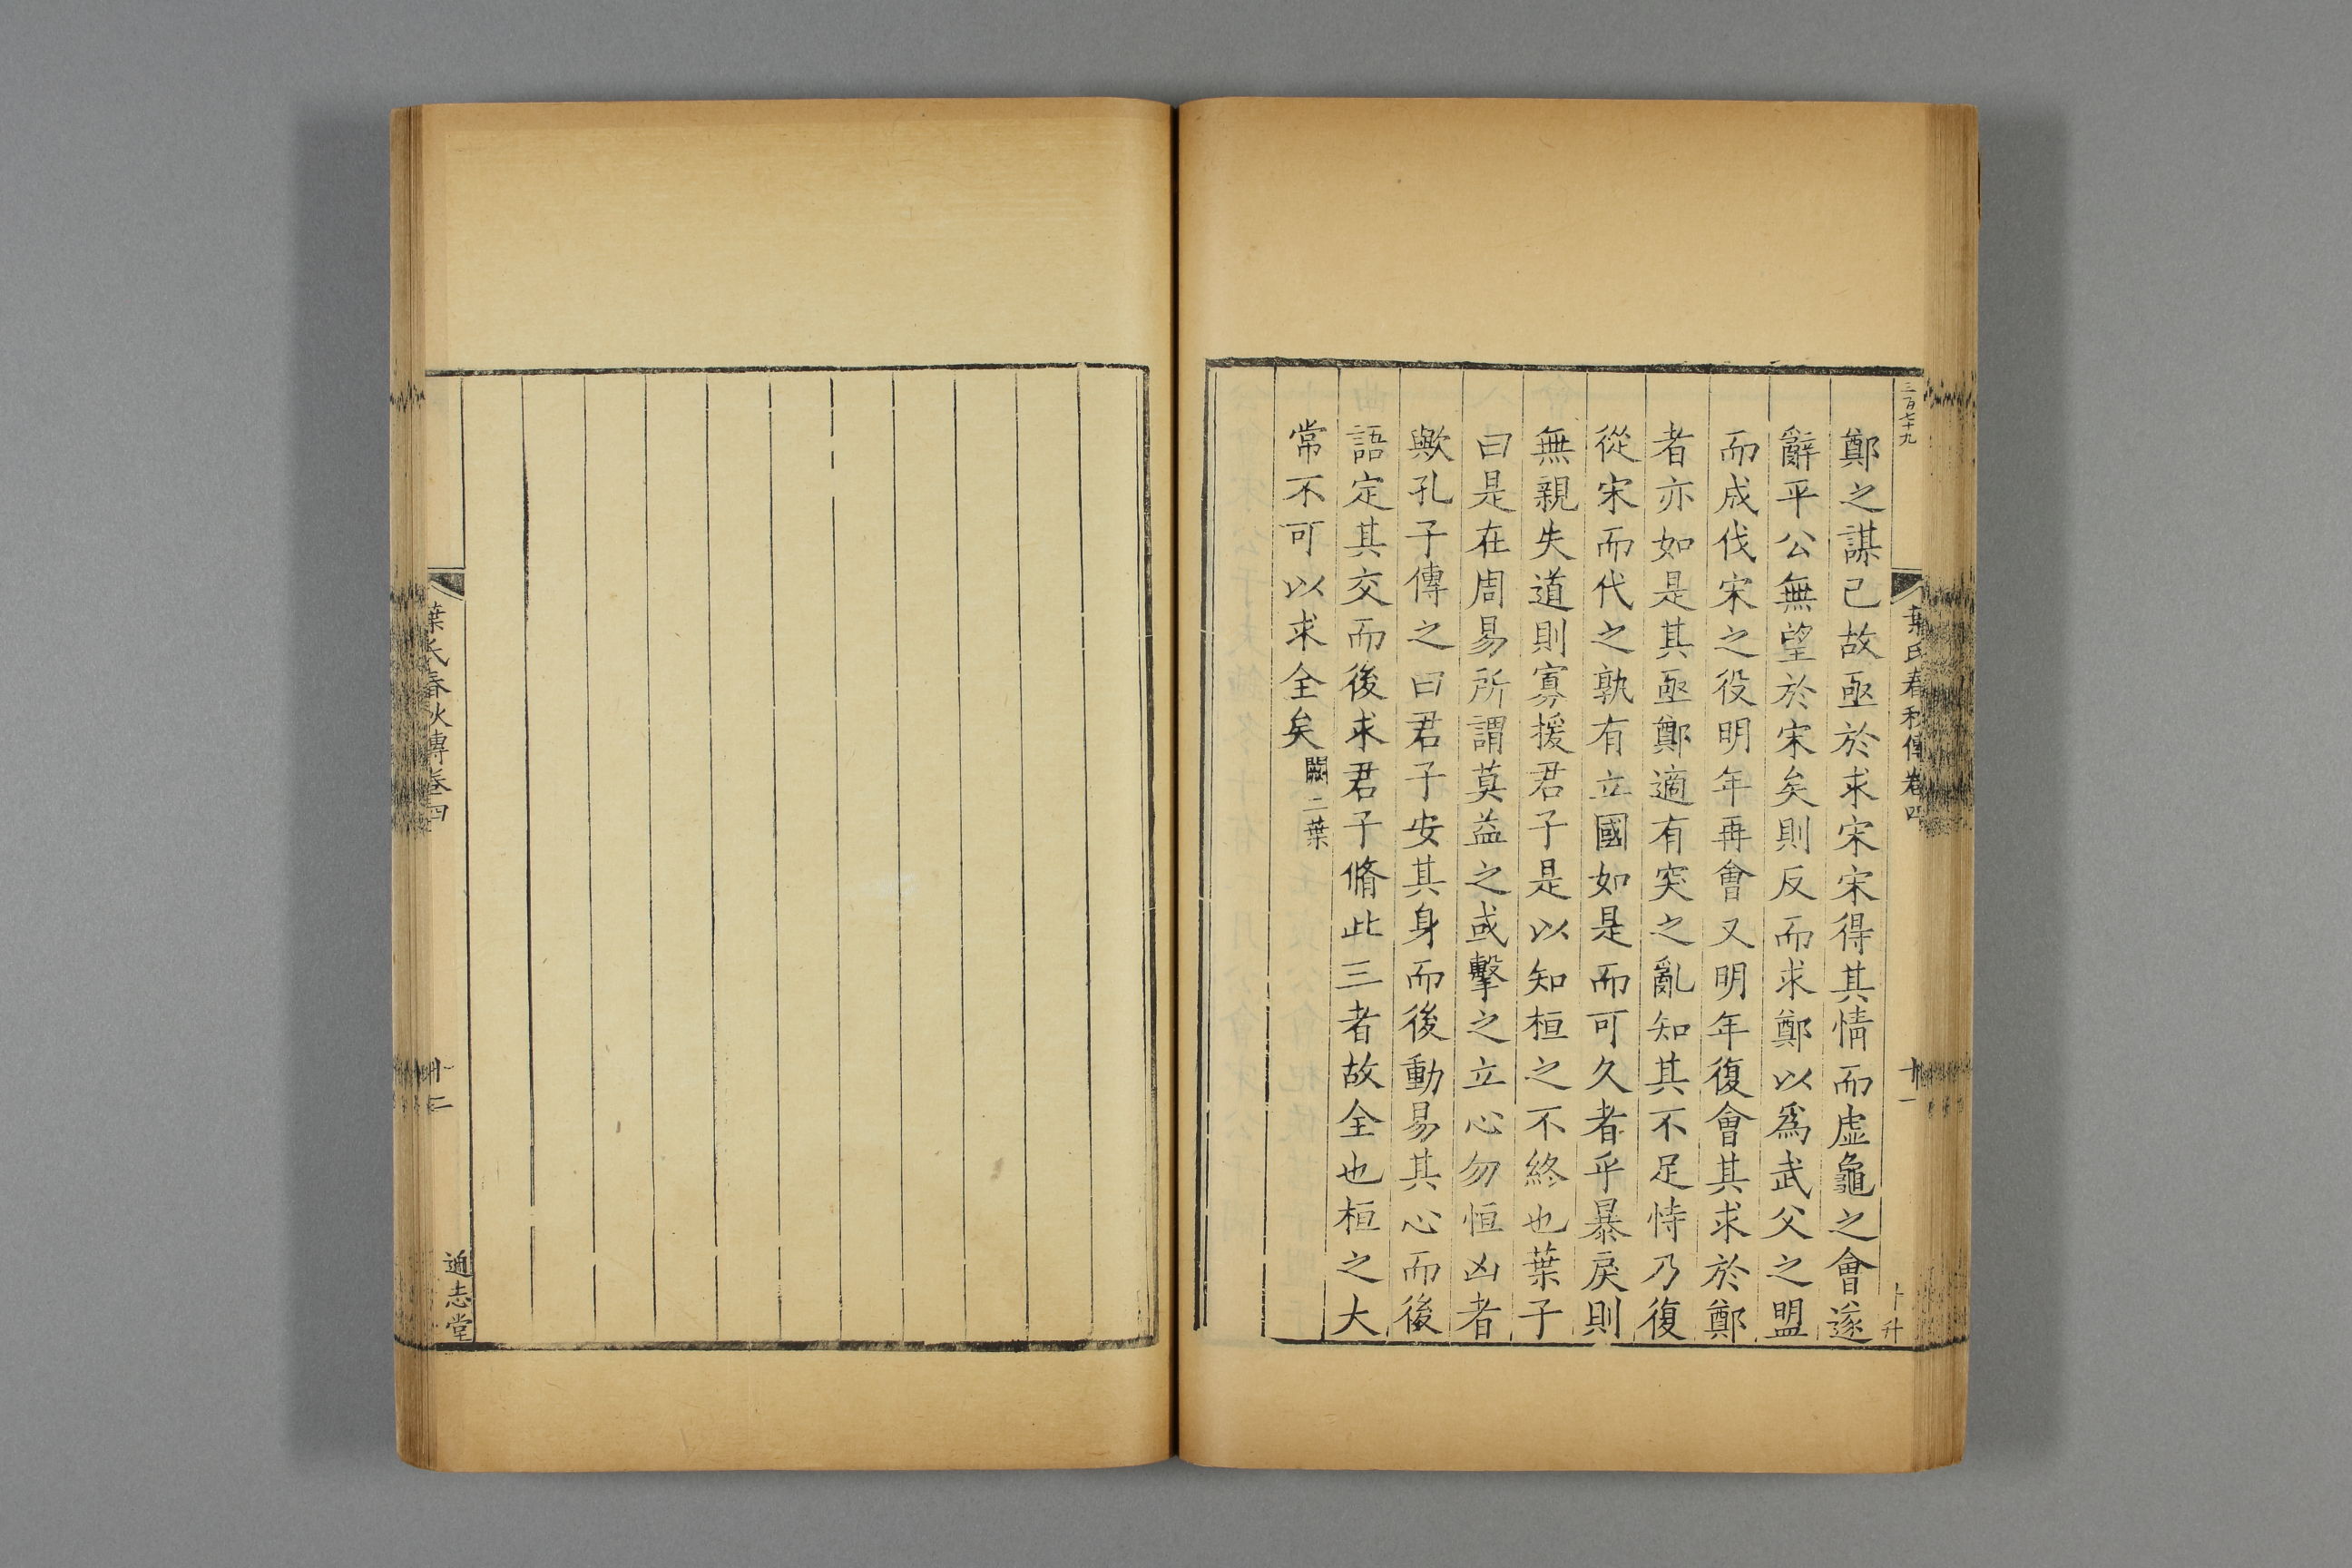 三百七十九
葉氏春秋傳卷四
十一
卜升
鄭之謀已故亟於求宋宋得其情而虛龜之會遂
辭平公無望於宋矣則反而求鄭以爲武父之盟
而成伐宋之役明年再會又明年復會其求於鄭
者亦如是其亟鄭適有突之亂知其不足恃乃復
從宋而代之孰有立國如是而可久者乎暴戾則
無親失道則寡援君子是以知桓之不終也葉子
曰是在周易所謂莫益之或擊之立心勿恒凶者
歟孔子傳之曰君子安其身而後動易其心而後
語定其交而後求君子脩此三者故全也桓之大
常不可以求全矣闕二葉
葉氏春秋傳卷四
十二
通志堂